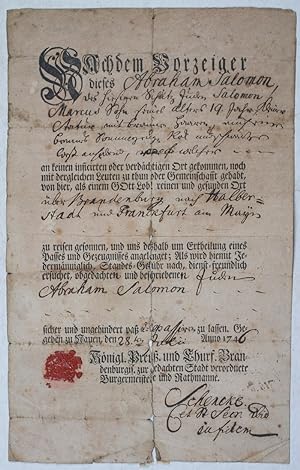 Nachdem Vorzeiger
dieses Abraham Salomon,
des Juden Salomon
Marcus Sohn seines alters 19 Jahr
Statur mit braunen Haaren
braunen Rok und
welcher
an keinen inficirten oder verdächtigen Ort gekommen, noch
mit dergleichen Leuten zu thun oder Gemeinschafft gehabt,
von hier, als einem GOtt Lob! reinen und gesunden Ort
über Brandenburg nach Halber-
stadt und Franckfurt am Mayn
zu reisen gesonnen, und uns deshalb um Ertheilung eines
Passes und Gezeugnisses angelanget; Als wird hiemit Je-
dermänniglich, Standes Gebühr nach, dienst-freundlich
ersuchet, obgedachten und beschriebenen Juden
Abraham Salomon
sicher und ungehindert paß- u. repassiren zu lassen. Ge-
geben zu Nauen, den 28ten Anno 1746
Königl. Preuß. und Churf. Bran-
denburgis. zur gedachten Stadt verordnete
Burgermeister und Rathmanne.